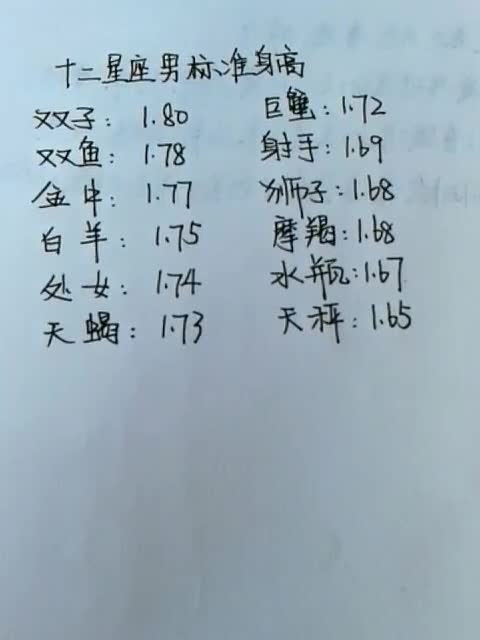 十二星座男标准身高
双子：1.80 巨蟹：1.72
双鱼：1.78 射手：1.69
金牛：1.77 狮子：1.68
白羊：1.75 摩羯：1.68
处女：1.74 水瓶：1.67
天蝎：1.73 天秤：1.65